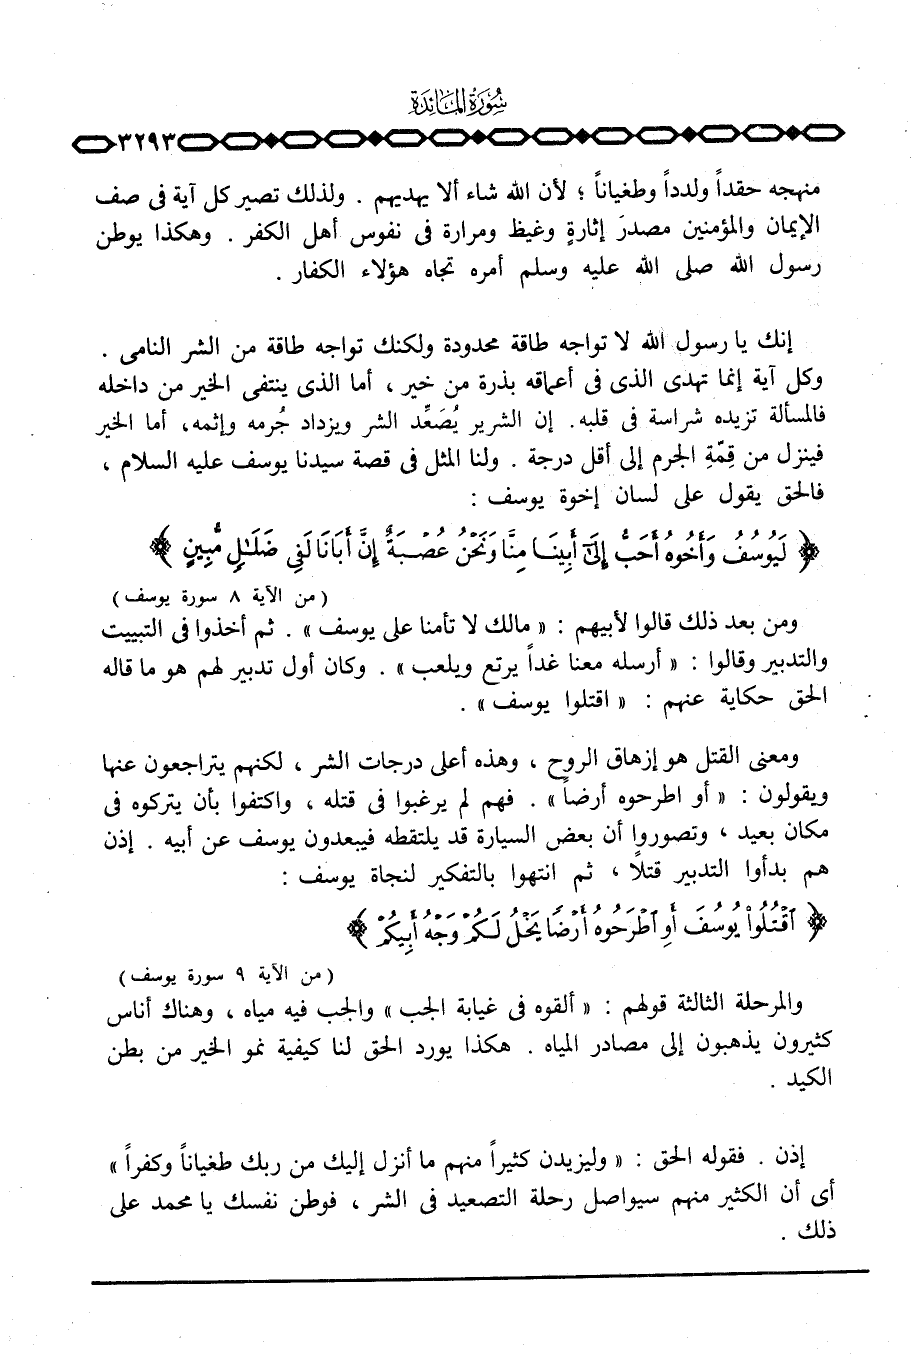 سُورَةُ المَائِدَة
٣٢٩٣
منهجه حقداً ولدداً وطغياناً ؛ لأن الله شاء ألا يهديهم . ولذلك تصير كل آية فى صف
الإيمان والمؤمنين مصدرَ إثارةٍ وغيظ ومرارة فى نفوس أهل الكفر . وهكذا يوطن
رسول الله صلى الله عليه وسلم أمره تجاه هؤلاء الكفار .
إنك يا رسول الله لا تواجه طاقة محدودة ولكنك تواجه طاقة من الشر النامى .
وكل آية إنما تهدى الذى فى أعماقه بذرة من خير ، أما الذى ينتفى الخير من داخله
فالمسألة تزيده شراسة فى قلبه. إن الشرير يُصَعِّد الشر ويزداد جُرمه وإثمه، أما الخير
فينزل من قِمّةِ الجرم إلى أقل درجة . ولنا المثل فى قصة سيدنا يوسف عليه السلام ،
فالحق يقول على لسان إخوة يوسف :
﴿ لَيُوسُفُ وَأَخُوهُ أَحَبُّ إِلَىٰٓ أَبِينَا مِنَّا وَنَحْنُ عُصْبَةٌ إِنَّ أَبَانَا لَفِى ضَلَـٰلٍ مُّبِينٍ ﴾
( من الآية ٨ سورة يوسف )
ومن بعد ذلك قالوا لأبيهم : « مالك لا تأمنا على يوسف » . ثم أخذوا فى التبييت
والتدبير وقالوا : « أرسله معنا غداً يرتع ويلعب » . وكان أول تدبير لهم هو ما قاله
الحق حكاية عنهم : « اقتلوا يوسف » .
ومعنى القتل هو إزهاق الروح ، وهذه أعلى درجات الشر ، لكنهم يتراجعون عنها
ويقولون : « أو اطرحوه أرضاً » . فهم لم يرغبوا فى قتله ، واكتفوا بأن يتركوه فى
مكان بعيد ، وتصوروا أن بعض السيارة قد يلتقطه فيبعدون يوسف عن أبيه . إذن
هم بدأوا التدبير قتلاً ، ثم انتهوا بالتفكير لنجاة يوسف :
﴿ ٱقْتُلُوا۟ يُوسُفَ أَوِ ٱطْرَحُوهُ أَرْضًا يَخْلُ لَكُمْ وَجْهُ أَبِيكُمْ ﴾
( من الآية ٩ سورة يوسف )
والمرحلة الثالثة قولهم : « ألقوه فى غيابة الجب » والجب فيه مياه ، وهناك أناس
كثيرون يذهبون إلى مصادر المياه . هكذا يورد الحق لنا كيفية نمو الخير من بطن
الكيد .
إذن . فقوله الحق : « وليزيدن كثيراً منهم ما أنزل إليك من ربك طغياناً وكفراً »
أى أن الكثير منهم سيواصل رحلة التصعيد فى الشر ، فوطن نفسك يا محمد على
ذلك .